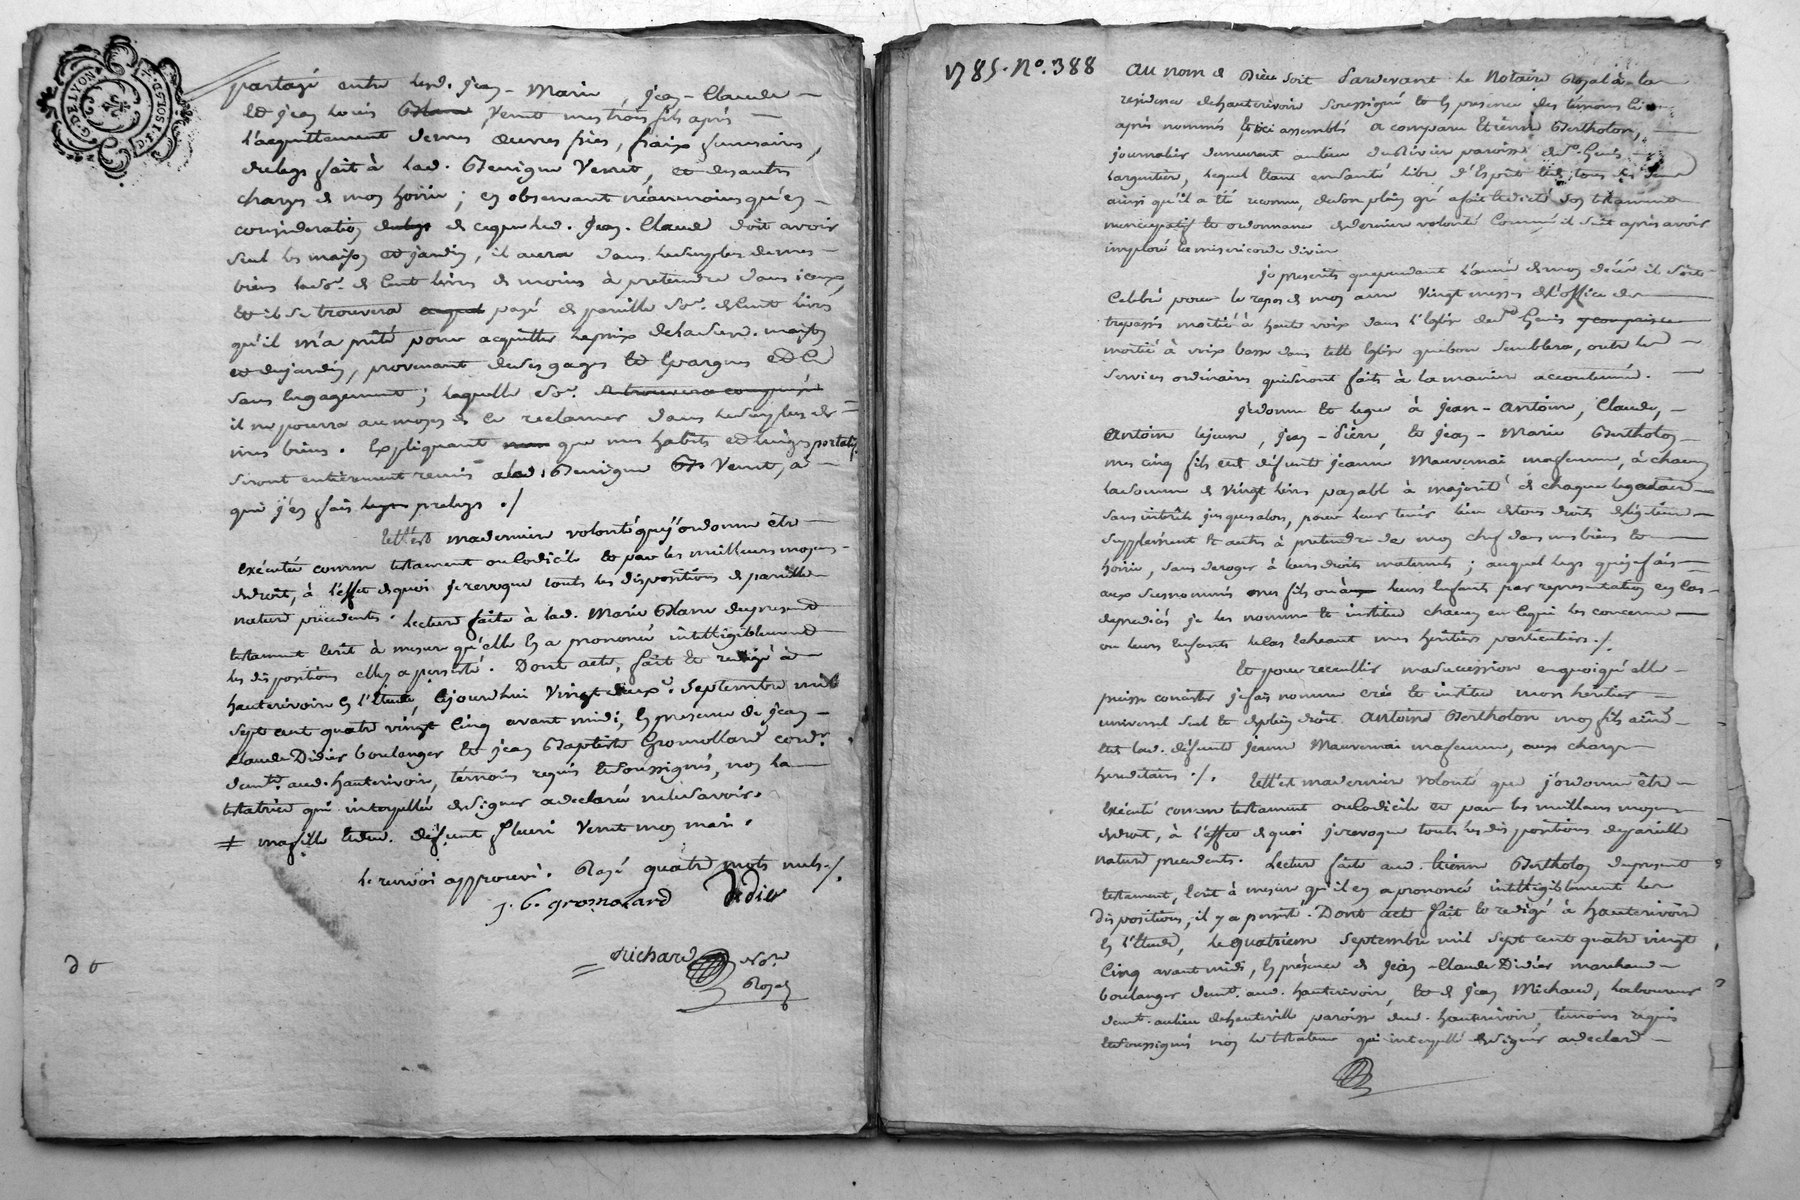 G. DE LYON
partagé entre lesd. jean-Marie jean-Claude
Et jean Louis Blanc Venet mes trois fils après
l'acquittement de mes œuvres pies, fraix funeraires,
du legs fait à lad. Benigne Venet, et des autres
charges de mon hoirie ; en observant néanmoins qu'en
consideration de de ce que led. Jean-Claude doit avoir
seul les maison et jardin, il aura dans le surplus de mes
biens la so.e de Cent livres de moins à pretendre dans iceux,
Et il se trouvera payé de pareille so.e de Cent livres
qu'il m'a prêté pour acquitter le prix de la susd. maison
et du jardin, provenant de ses gages et Epargnes
sans Engagement ; laquelle so.e se trouvera
il ne pourra au moyen de ce reclamer dans le surplus de
mes biens. Expliquant que mes habits et linges portatifs
seront entièrement remis a lad. Benigne Venet, à
qui j'en fais prelegs ./
telle est ma dernière volonté que j'ordonne être
Exécutée comme testament ou Codicile et par les meilleurs moyens
de droit, à l'effet de quoi je revoque toutes les dispositions de pareille
nature précédentes. Lecture faite à lad. Marie Blanc du présent
testament Ecrit à mesure qu'elle En a prononcé intelligiblement
les dispositions elle y a persisté. Dont acte, fait et redigé à
hauterivoire En l'Etude, Cejourd'hui vingt deux.e Septembre mil
sept cent quatre vingt Cinq avant midi, En presence de Jean
Claude Didier boulanger Et jean Baptiste Gromollard cord.r
dem.t aud. hauterivoire, témoins requis Et soussignés, non la
testatrice qui interpellée de signer a declaré ne le savoir.
# ma fille Et dud. défunt fleuri Venet mon mari.
le renvoi approuvé. Rayé quatre mots nuls ./.
J. B. gromolard Didier
Richard No.re
Royal
1785. N.o 388
Au nom de Dieu soit Pardevant le Notaire Royal à la
residence de hauterivoire soussigné et En presence des témoins Ci
après nommés Et ici assemblés a comparu Etienne Bertholon,
journalier demeurant au lieu du Rivier paroisse de S.t Genis
l'argentier, lequel Etant en santé libre d'Esprit
ainsi qu'il a Eté reconnu, de son plein gré a fait et dicté son testament
nuncupatif Et ordonnance de derniere volonté Comme il suit après avoir
imploré la misericorde divine
Je prescrits que pendant l'année de mon décès il soit
Celebré pour le repos de mon ame vingt messes de l'office des
trepassés moitié à haute voix dans l'Eglise dud. Genis y compris
moitié à voix basse dans telle Eglise que bon semblera, outre les
Services ordinaires qui seront faits à la manière accoutumée.
Je donne Et legue à Jean-antoine, Claude,
Antoine le jeune, Jean-Pierre, Et Jean-Marie Bertholon
mes cinq fils Et de défunte jeanne Mauvernai ma femme, à chacun
la somme de vingt livres payable à majorité de chaque legataire
sans intérêts jusques alors, pour leur tenir lieu de tous droits de légitime
supplément Et autres à pretendre de mon chef dans mes biens Et
hoirie, sans deroger à leurs droits maternels ; auquel legs que je fais
aux susnommés mes fils ou à leurs Enfants par representation En Cas
de predécès je les nomme Et institue chacun en ce qui les concerne
ou leurs Enfants le Cas Echeant mes héritiers particuliers ./.
Et pour recueillir ma succession en quoi qu'elle
puisse consister je fais nomme crée Et institue mon héritier
universel seul Et de plein droit Antoine Bertholon mon fils aîné
Et de lad. défunte Jeanne Mauvernai ma femme, aux charges
hereditaires ./. telle est ma derniere volonté que j'ordonne être
Exécuté comme testament ou Codicile et par les meilleurs moyens
de droit, à l'effet de quoi je revoque toutes les dispositions de pareille
nature precedentes. Lecture faite aud. Etienne Bertholon du présent
testament, Ecrit à mesure qu'il en a prononcé intelligiblement les
dispositions, il y a persisté. Dont acte fait Et redigé à hauterivoire
En l'Etude, le quatrieme Septembre mil sept cent quatre vingt
Cinq avant midi, En présence de Jean-Claude Didier marchand
boulanger dem.t aud. hauterivoire, Et de Jean Michaud, laboureur
dem.t au lieu de hauteville paroisse dud. hauterivoire, témoins requis
Et soussignés non le testateur qui interpellé de signer a declaré